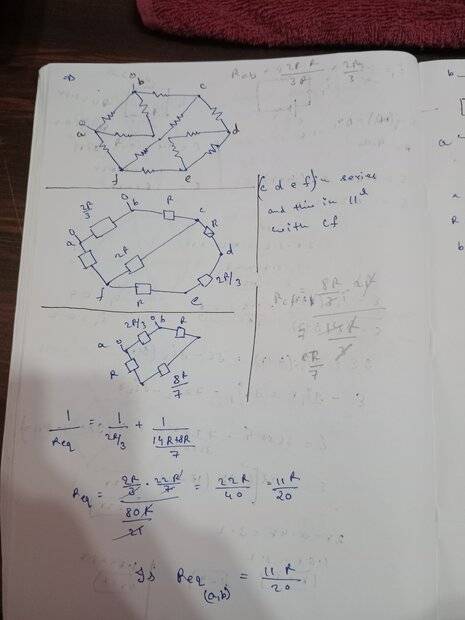 b
c
a
d
f
e
Rab = 2R R / 3R = 2R/3
2R/3
b
R
c
a
R
2R
d
f
R
e
2R/3
(c d e f) in series
and this in ||el
with cf
a
2R/3
b
R
R
8R/7
1/Req = 1/(2R/3) + 1/((14R+8R)/7)
Req = (2R/3 · 22R/7)/(80R/21) = 22R/40 = 11R/20
Is Req (a,b) = 11R/20
b
a
a
R
b